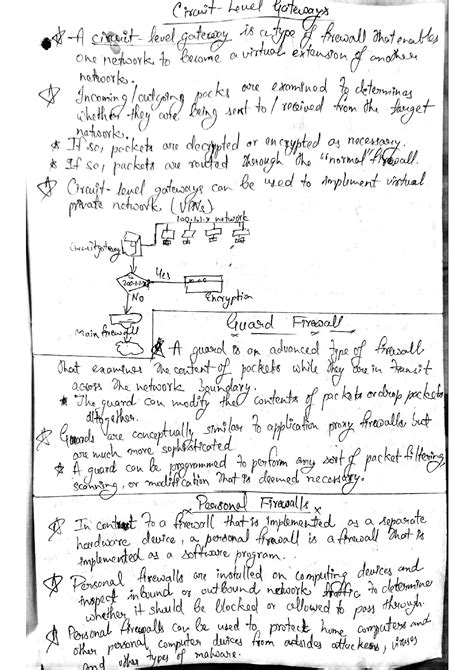 Circuit-Level Gateways
A circuit-level gateway is a type of firewall that enables
one network to become a virtual extension of another
network.
Incoming/outgoing packs are examined to determines
whether they are being sent to/received from the target
network.
If so, packets are decrypted or encrypted as necessary.
If so, packets are routed through the "normal" firewall.
Circuit-level gateways can be used to implement virtual
private network (VPNs)
100.101.x network
Circuit gateway
Yes
No
Encryption
Main firewall
Guard Firewall
A guard is an advanced type of firewall
that examines the content of packets while they are in transit
across the network boundary.
The guard can modify the contents of packets or drop packets
altogether.
Guards are conceptually similar to application proxy firewalls but
are much more sophisticated
A guard can be programmed to perform any sort of packet filtering,
scanning, or modification that is deemed necessary.
Personal Firewalls
In contrast to a firewall that is implemented as a separate
hardware device, a personal firewall is a firewall that is
implemented as a software program.
Personal firewalls are installed on computing devices and
inspect inbound or outbound network traffic to determine
whether it should be blocked or allowed to pass through.
Personal firewalls can be used to protect home computers and
other personal computer devices from outsides attackers, viruses
and other types of malware.